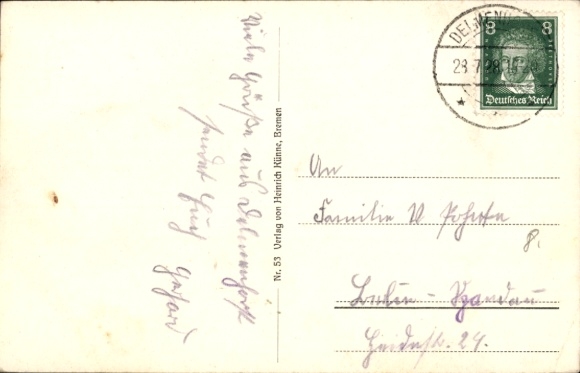 Viele Grüße aus Delmenhorst
sendet Euch Gerhard
Nr. 53 Verlag von Heinrich Künne, Bremen
DELMENH
28.7.28
8 8
Deutsches Reich
An
Familie W
Berlin - Spandau
Heidestr. 24.